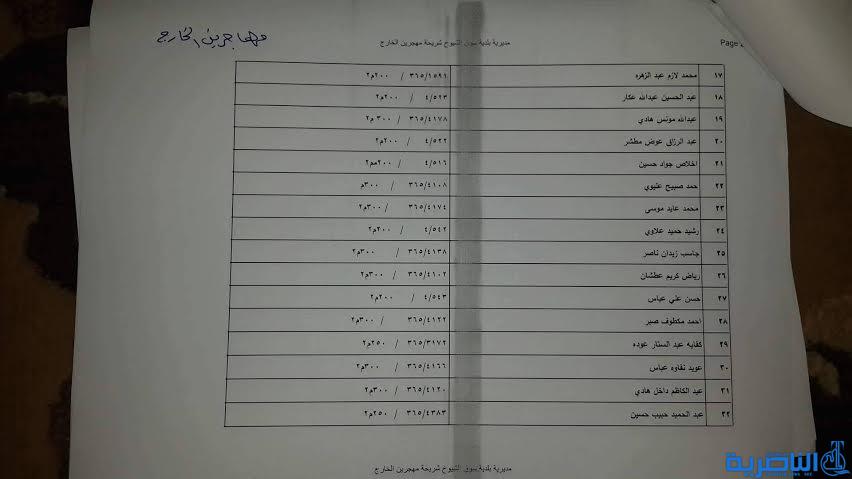 مهاجرين الخارج
مديرية بلدية سوق الشيوخ شريحة مهجرين الخارج
Page
١٧ محمد لازم عبد الزهره ٣٦٥/١٥٩١ / ٢٠٠م٢
١٨ عبد الحسين عبدالله عكار ٤/٥١٣ / ٢٠٠م٢
١٩ عبدالله مونس هادي ٣٦٥/٤١٧٨ / ٣٠٠م٢
٢٠ عبد الرزاق عوض مطشر ٤/٥٢٢ / ٢٠٠م٢
٢١ اخلاص جواد حسين ٤/٥١٦ / ٢٠٠مم٢
٢٢ حمد صبيح عليوي ٣٦٥/٤١٠٨ / ٣٠٠م
٢٣ محمد عايد موسى ٣٦٥/٤١٧٤ / ٣٠٠م٢
٢٤ رشيد حميد علاوي ٤/٥٤٢ / ٢٠٠م٢
٢٥ جاسب زيدان ناصر ٣٦٥/٤١٣٨ / ٣٠٠م٢
٢٦ رياض كريم عطشان ٣٦٥/٤١٠٢ / ٣٠٠م٢
٢٧ حسن علي عباس ٤/٥٤٣ / ٢٠٠م٢
٢٨ احمد مكطوف صبر ٣٦٥/٤١٢٢ / ٣٠٠م٢
٢٩ كفايه عبد الستار عوده ٣٦٥/٣١٧٢ / ٢٥٠م٢
٣٠ عويد نفاوه عباس ٣٦٥/٤١٦٦ / ٣٠٠م٢
٣١ عبد الكاظم داخل هادي ٣٦٥/٤١٢٠ / ٣٠٠م٢
٣٢ عبد الحميد حبيب حسين ٣٦٥/٤٣٨٣ / ٢٥٠م٢
مديرية بلدية سوق الشيوخ شريحة مهجرين الخارج
الناصرية